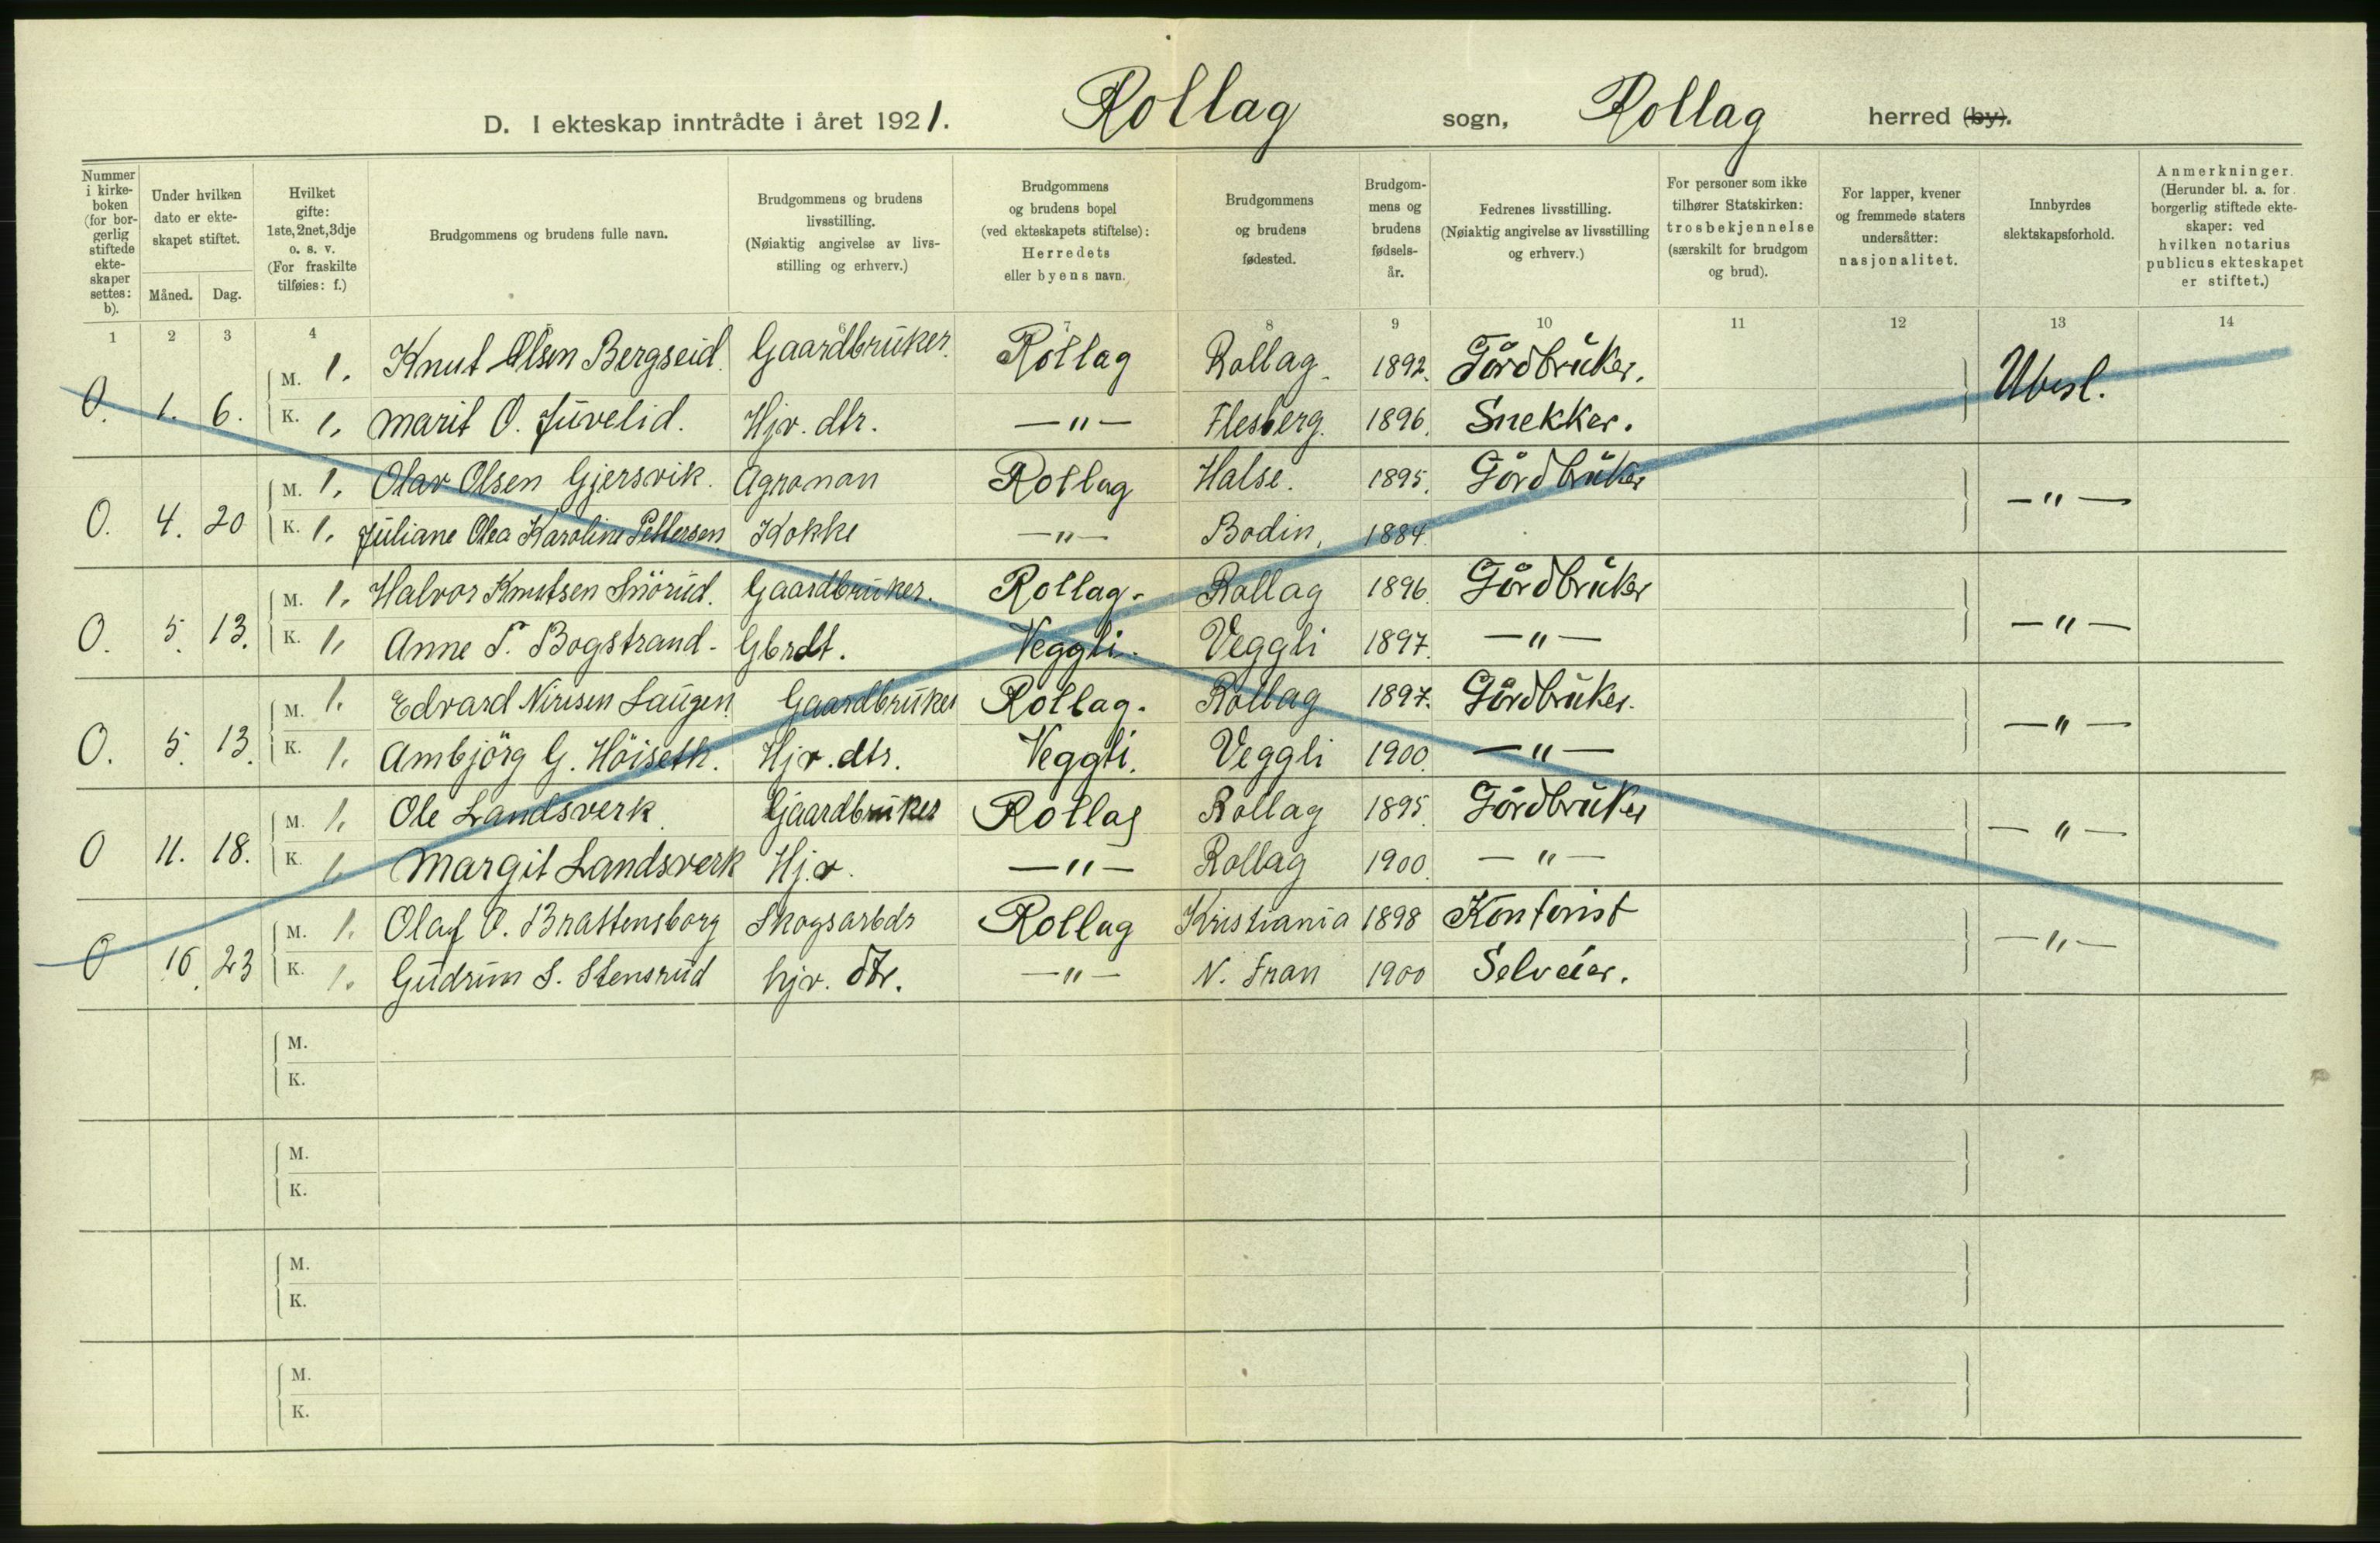 D. I ekteskap inntrådte i året 1921. Rollag sogn, Rollag herred (by).
Nummer i kirkeboken (for borgerlig stiftede ekteskaper settes: b).
Under hvilken dato er ekteskapet stiftet.
Måned. Dag.
Hvilket gifte: 1ste, 2net, 3dje o. s. v. (For fraskilte tilføies: f.)
Brudgommens og brudens fulle navn.
Brudgommens og brudens livsstilling. (Nøiaktig angivelse av livsstilling og erhverv.)
Brudgommens og brudens bopel (ved ekteskapets stiftelse): Herredets eller byens navn.
Brudgommens og brudens fødested.
Brudgommens og brudens fødselsår.
Fedrenes livsstilling. (Nøiaktig angivelse av livsstilling og erhverv.)
For personer som ikke tilhører Statskirken: trosbekjennelse (særskilt for brudgom og brud).
For lapper, kvener og fremmede staters undersåtter: nasjonalitet.
Innbyrdes slektskapsforhold.
Anmerkninger. (Herunder bl. a. for borgerlig stiftede ekteskaper: ved hvilken notarius publicus ekteskapet er stiftet.)
1 2 3 4 5 6 7 8 9 10 11 12 13 14
O. 1. 6. M. 1. Knut Olsen Bergseid. Gaardbruker. Rollag Rollag. 1892. Gårdbruker. Ubesl.
K. 1. Marit O. Juvelid. Hjv. dtr. —"— Flesberg. 1896. Snekker.
O. 4. 20 M. 1. Olav Olsen Gjersvik. Agronon Rollag Halse. 1895. Gårdbruker —"—
K. 1. Juliane Olea Karoline Pettersen Kokke —"— Bodin, 1884.
O. 5. 13. M. 1. Halvor Knutsen Gaardbruker. Rollag. Rollag 1896. Gårdbruker —"—
K. 1. Anne T. Bogstrand. Gbrdt. Veggli. Veggli 1897. —"—
O. 5. 13. M. 1. Edvard Nirisen Laugen Gaardbruker Rollag. Rollag 1897. Gårdbruker. —"—
K. 1. Ambjörg G. Höiseth. Hjv. dtr. Veggli. Veggli 1900. —"—
O 11. 18. M. 1. Ole Landsverk. Gaardbruker Rollag Rollag 1895. Gårdbruker —"—
K. 1. Margit Landsverk Hj.v. —"— Rollag 1900. —"—
O 10. 23 M. 1. Olaf O. Brattensborg Skogsarbdr Rollag Kristiania 1898 Kontorist —"—
K. 1. Gudrun S. Stensrud hjv. dtr. —"— N. Fran 1900 Selveier.
M.
K.
M.
K.
M.
K.
M.
K.